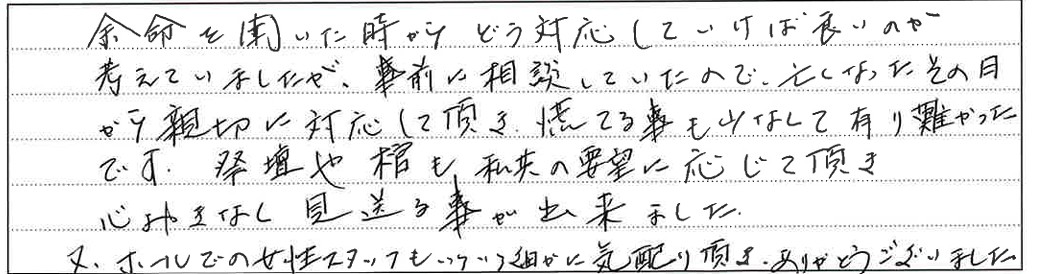 余命を聞いた時からどう対応していけば良いのか
考えていましたが、事前に相談していたので、亡くなったその日
から親切に対応して頂き、慌てる事も少なくて有り難かった
です。祭壇や棺も、私共の要望に応じて頂き
心おきなく見送る事が出来ました。
又、ホールでの女性スタッフもいろいろ細かに気配り頂き、ありがとうございました